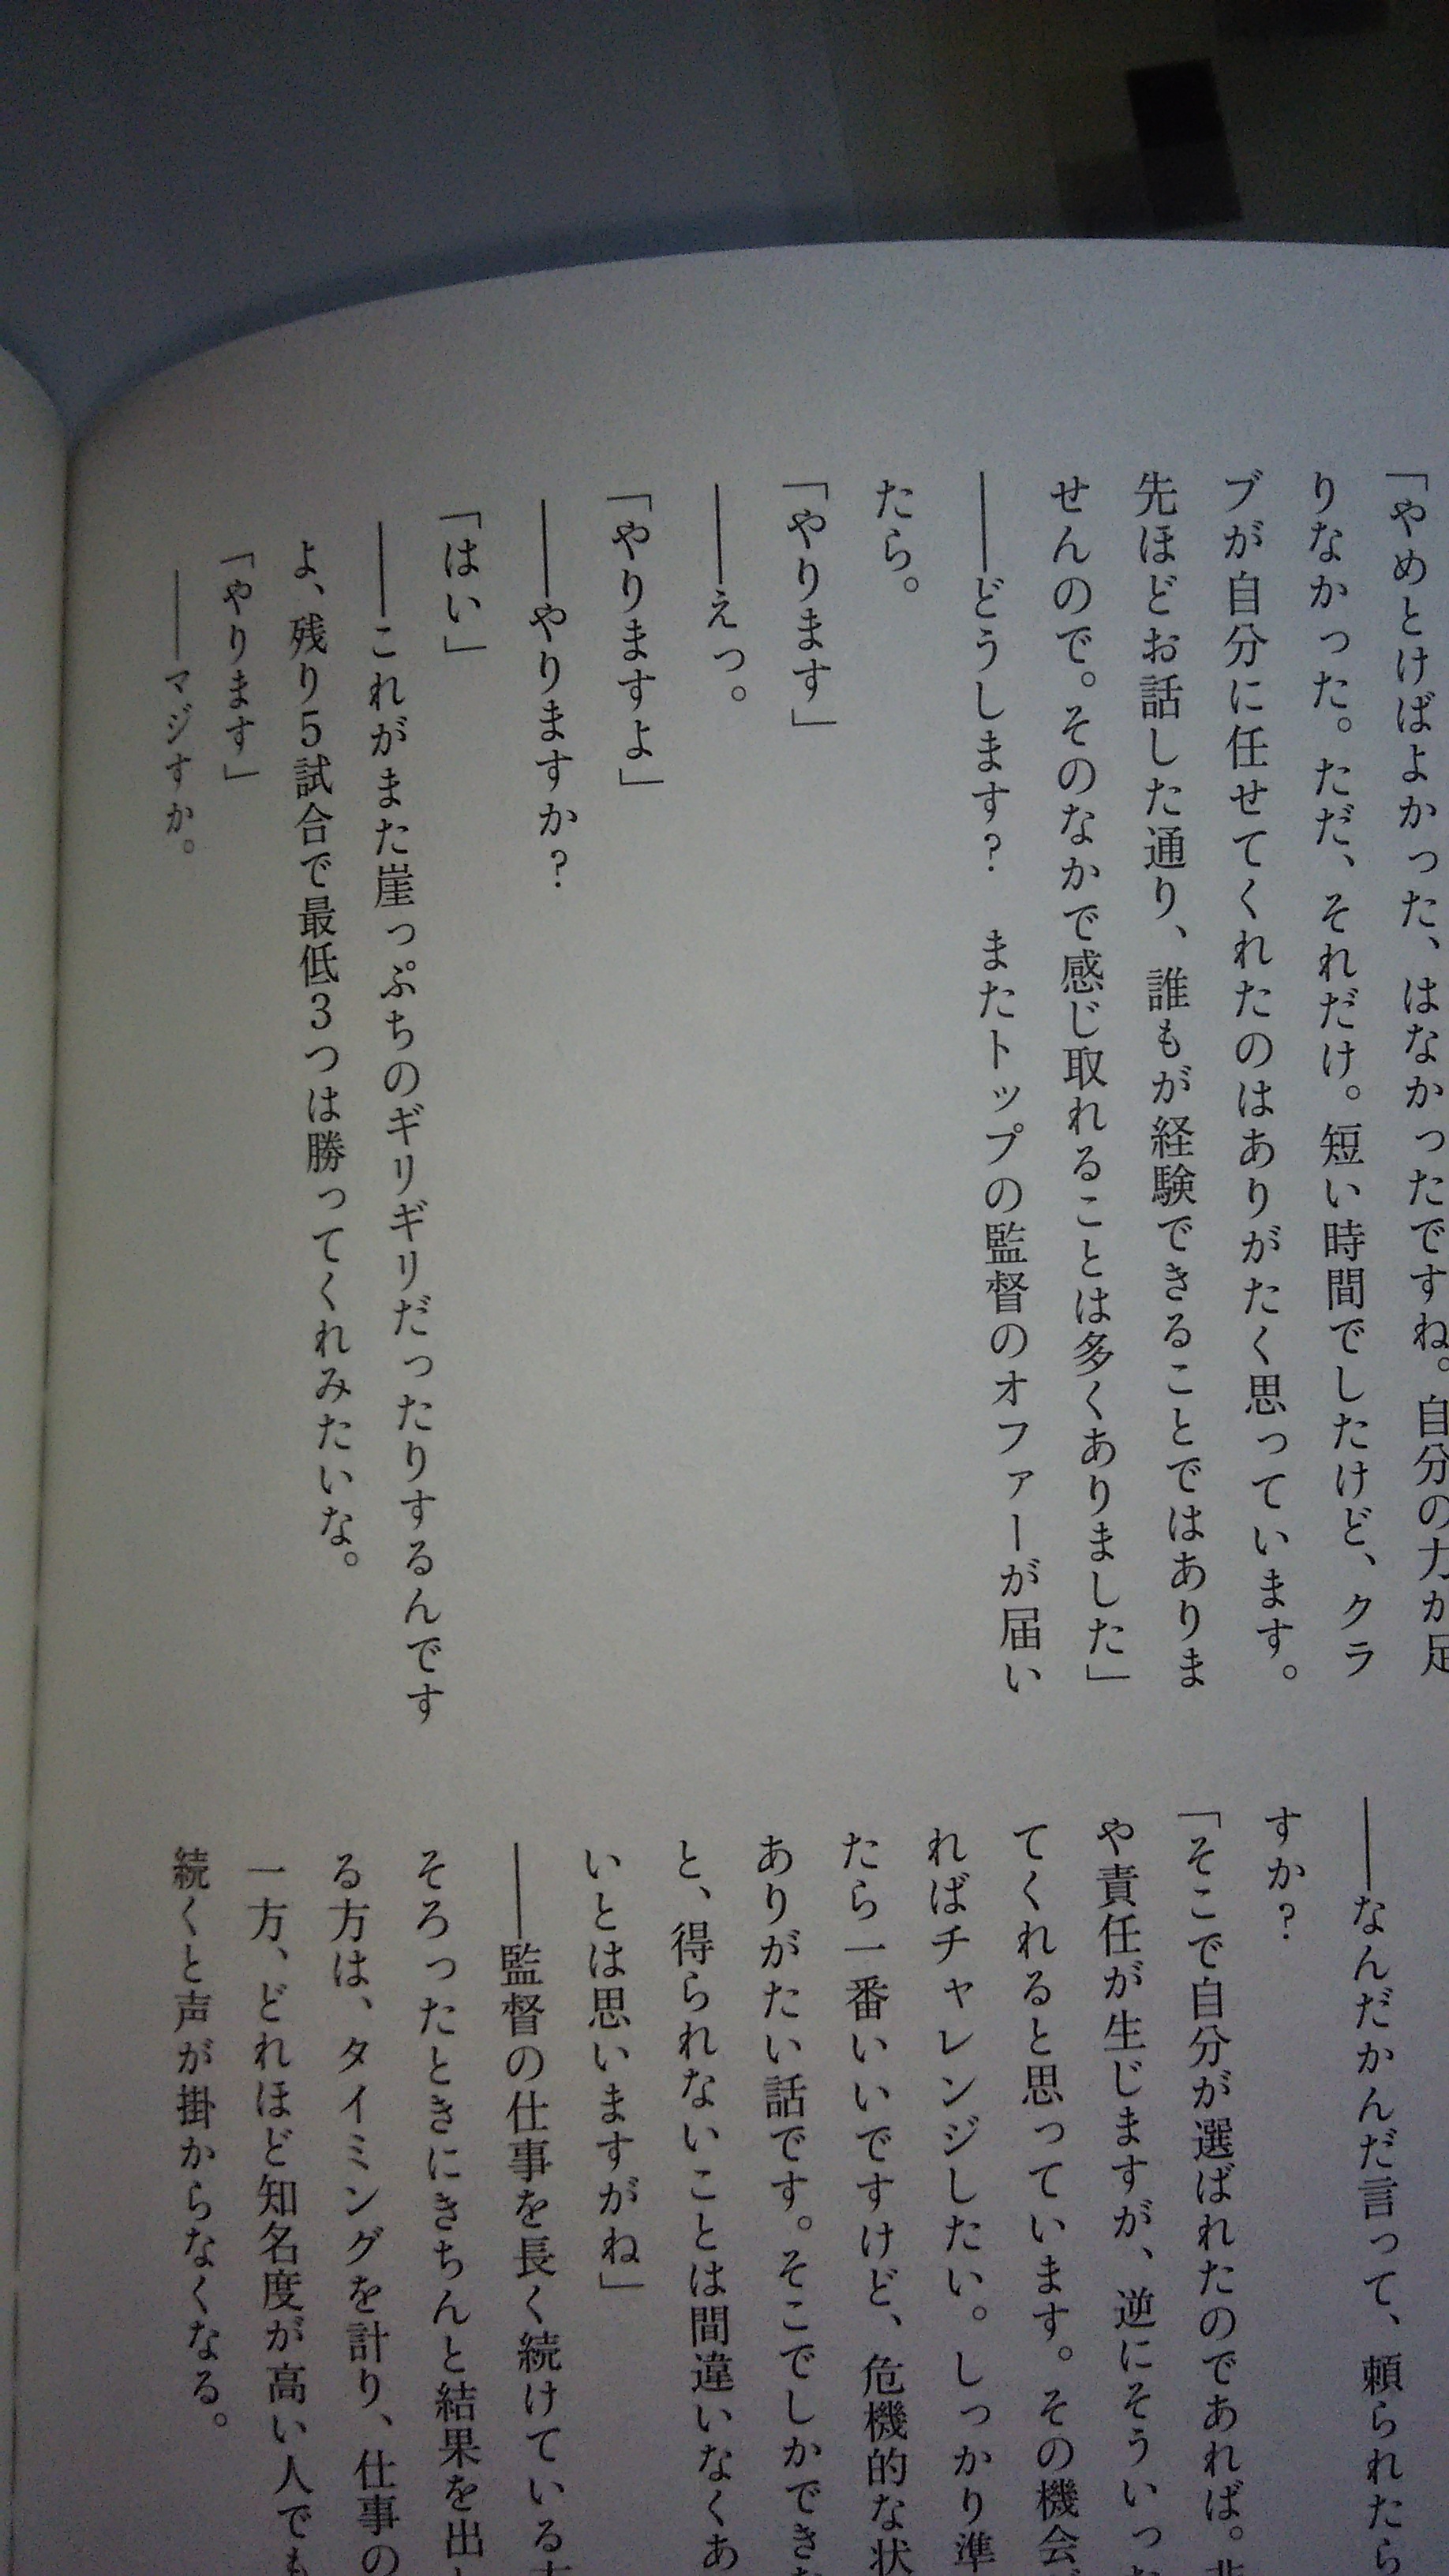 「やめとけばよかった、はなかったですね。自分の力が足
りなかった。ただ、それだけ。短い時間でしたけど、クラ
ブが自分に任せてくれたのはありがたく思っています。
先ほどお話した通り、誰もが経験できることではありま
せんので。そのなかで感じ取れることは多くありました」
――どうします？　またトップの監督のオファーが届い
たら。
「やります」
――えっ。
「やりますよ」
――やりますか？
「はい」
――これがまた崖っぷちのギリギリだったりするんです
よ、残り5試合で最低3つは勝ってくれみたいな。
「やります」
――マジすか。
――なんだかんだ言って、頼られたら
すか？
「そこで自分が選ばれたのであれば。
や責任が生じますが、逆にそういっ
てくれると思っています。その機会
ればチャレンジしたい。しっかり準
たら一番いいですけど、危機的な状
ありがたい話です。そこでしかでき
と、得られないことは間違いなくあ
いとは思いますがね」
――監督の仕事を長く続けている
そろったときにきちんと結果を出
る方は、タイミングを計り、仕事の
一方、どれほど知名度が高い人でも
続くと声が掛からなくなる。